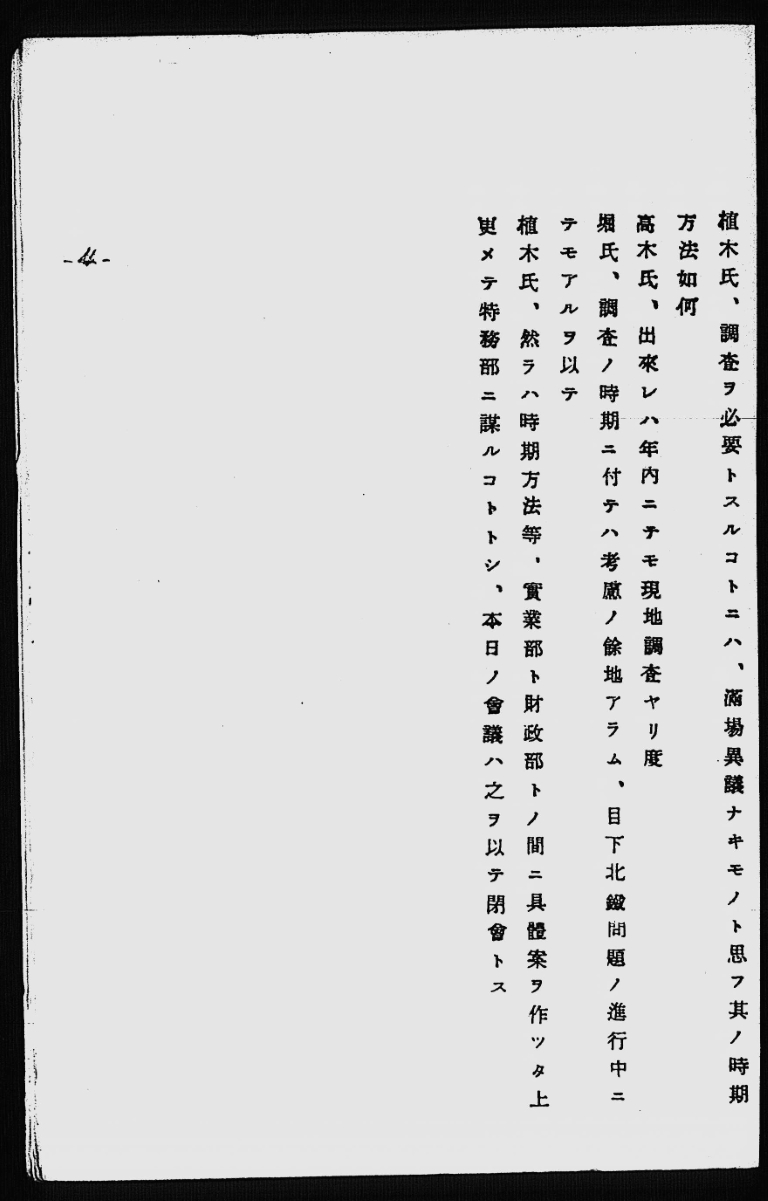 植木氏、調査ヲ必要トスルコトニハ、滿場異議ナキモノト思フ其ノ時期
方法如何
高木氏、出來レハ年内ニテモ現地調査ヤリ度
堀氏、調査ノ時期ニ付テハ考慮ノ餘地アラム、目下北鐵問題ノ進行中ニ
テモアルヲ以テ
植木氏、然ラハ時期方法等、實業部ト財政部トノ間ニ具體案ヲ作ツタ上
更メテ特務部ニ謀ルコトトシ、本日ノ會議ハ之ヲ以テ閉會トス